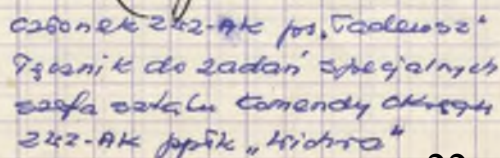 członek ZWZ-AK ps. "Tadeusz"
Łącznik do zadań specjalnych
szefa sztabu Komendy Okręgu
ZWZ-AK ppłk "Wichra"